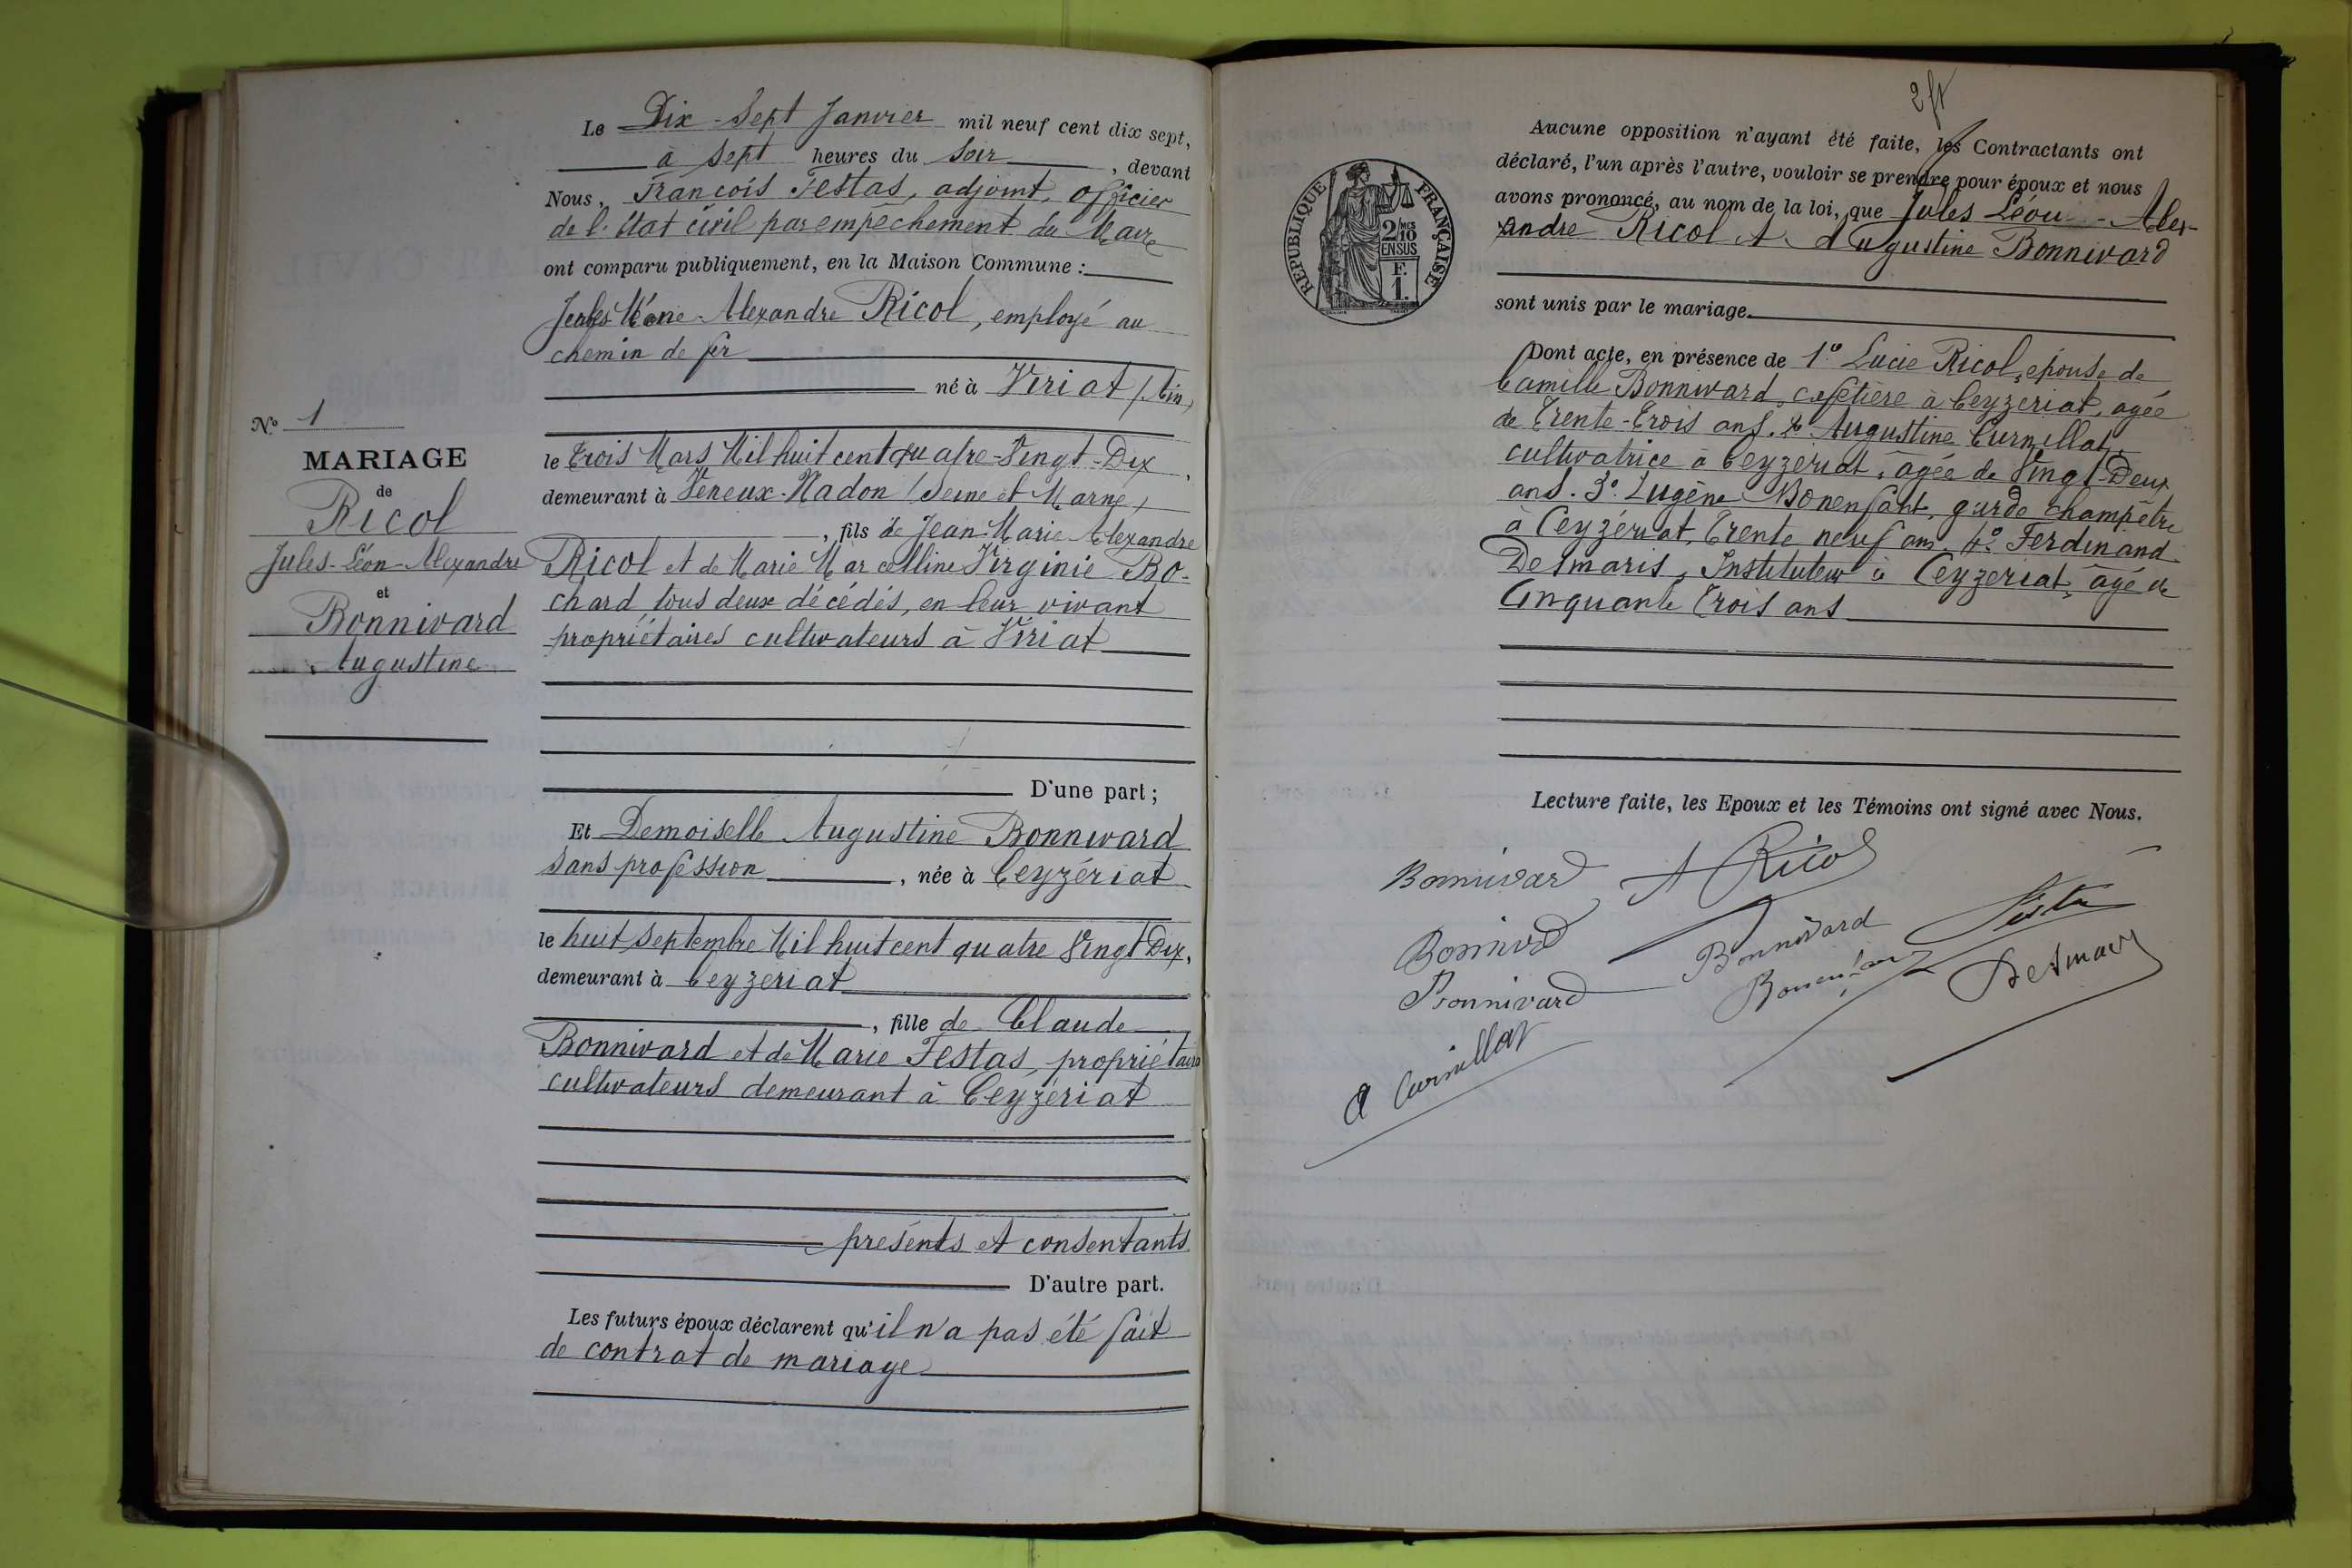 Le Dix-Sept Janvier mil neuf cent dix sept,
à Sept heures du Soir, devant
Nous, François Festas, adjoint, officier
de l'Etat civil par empêchement du Maire
ont comparu publiquement, en la Maison Commune :
Jules Léon Alexandre Ricol, employé au
chemin de fer
né à Viriat (Ain)
le Trois Mars Mil huit cent quatre-Vingt-Dix,
demeurant à Veneux-Nadon (Seine et Marne)
, fils de Jean-Marie Alexandre
Ricol et de Marie Marcelline Virginie Bo-
chard, tous deux décédés, en leur vivant
propriétaires cultivateurs à Viriat
D'une part ;
Et Demoiselle Augustine Bonnivard
Sans profession, née à Ceyzériat
le huit Septembre Mil huit cent quatre Vingt Dix,
demeurant à Ceyzeriat
, fille de Claude
Bonnivard et de Marie Festas, propriétaires
cultivateurs demeurant à Ceyzériat
présents et consentants
D'autre part.
Les futurs époux déclarent qu'il n'a pas été fait
de contrat de mariage
N° 1
MARIAGE
de
Ricol
Jules-Léon-Alexandre
et
Bonnivard
Augustine
REPUBLIQUE FRANÇAISE
2/10
EN SUS
F.
1.
Aucune opposition n'ayant été faite, les Contractants ont
déclaré, l'un après l'autre, vouloir se prendre pour époux et nous
avons prononcé, au nom de la loi, que Jules Léon - Alex-
andre Ricol et Augustine Bonnivard
sont unis par le mariage.
Dont acte, en présence de 1° Lucie Ricol, épouse de
Camille Bonnivard, cafetière à Ceyzeriat, agée
de Trente-Trois ans. 2° Augustine Curnillat,
cultivatrice à Ceyzeriat, âgée de Vingt-Deux
ans. 3° Eugène Bonenfant, garde champêtre
à Ceyzériat, Trente neuf ans. 4° Ferdinand
Desmaris, Instituteur à Ceyzeriat, âgé de
Cinquante Trois ans
Lecture faite, les Epoux et les Témoins ont signé avec Nous.
Bonnivard A Ricol
Bonnivard Festas
Bonnivard Bonenfant Desmaris
A Curnillat